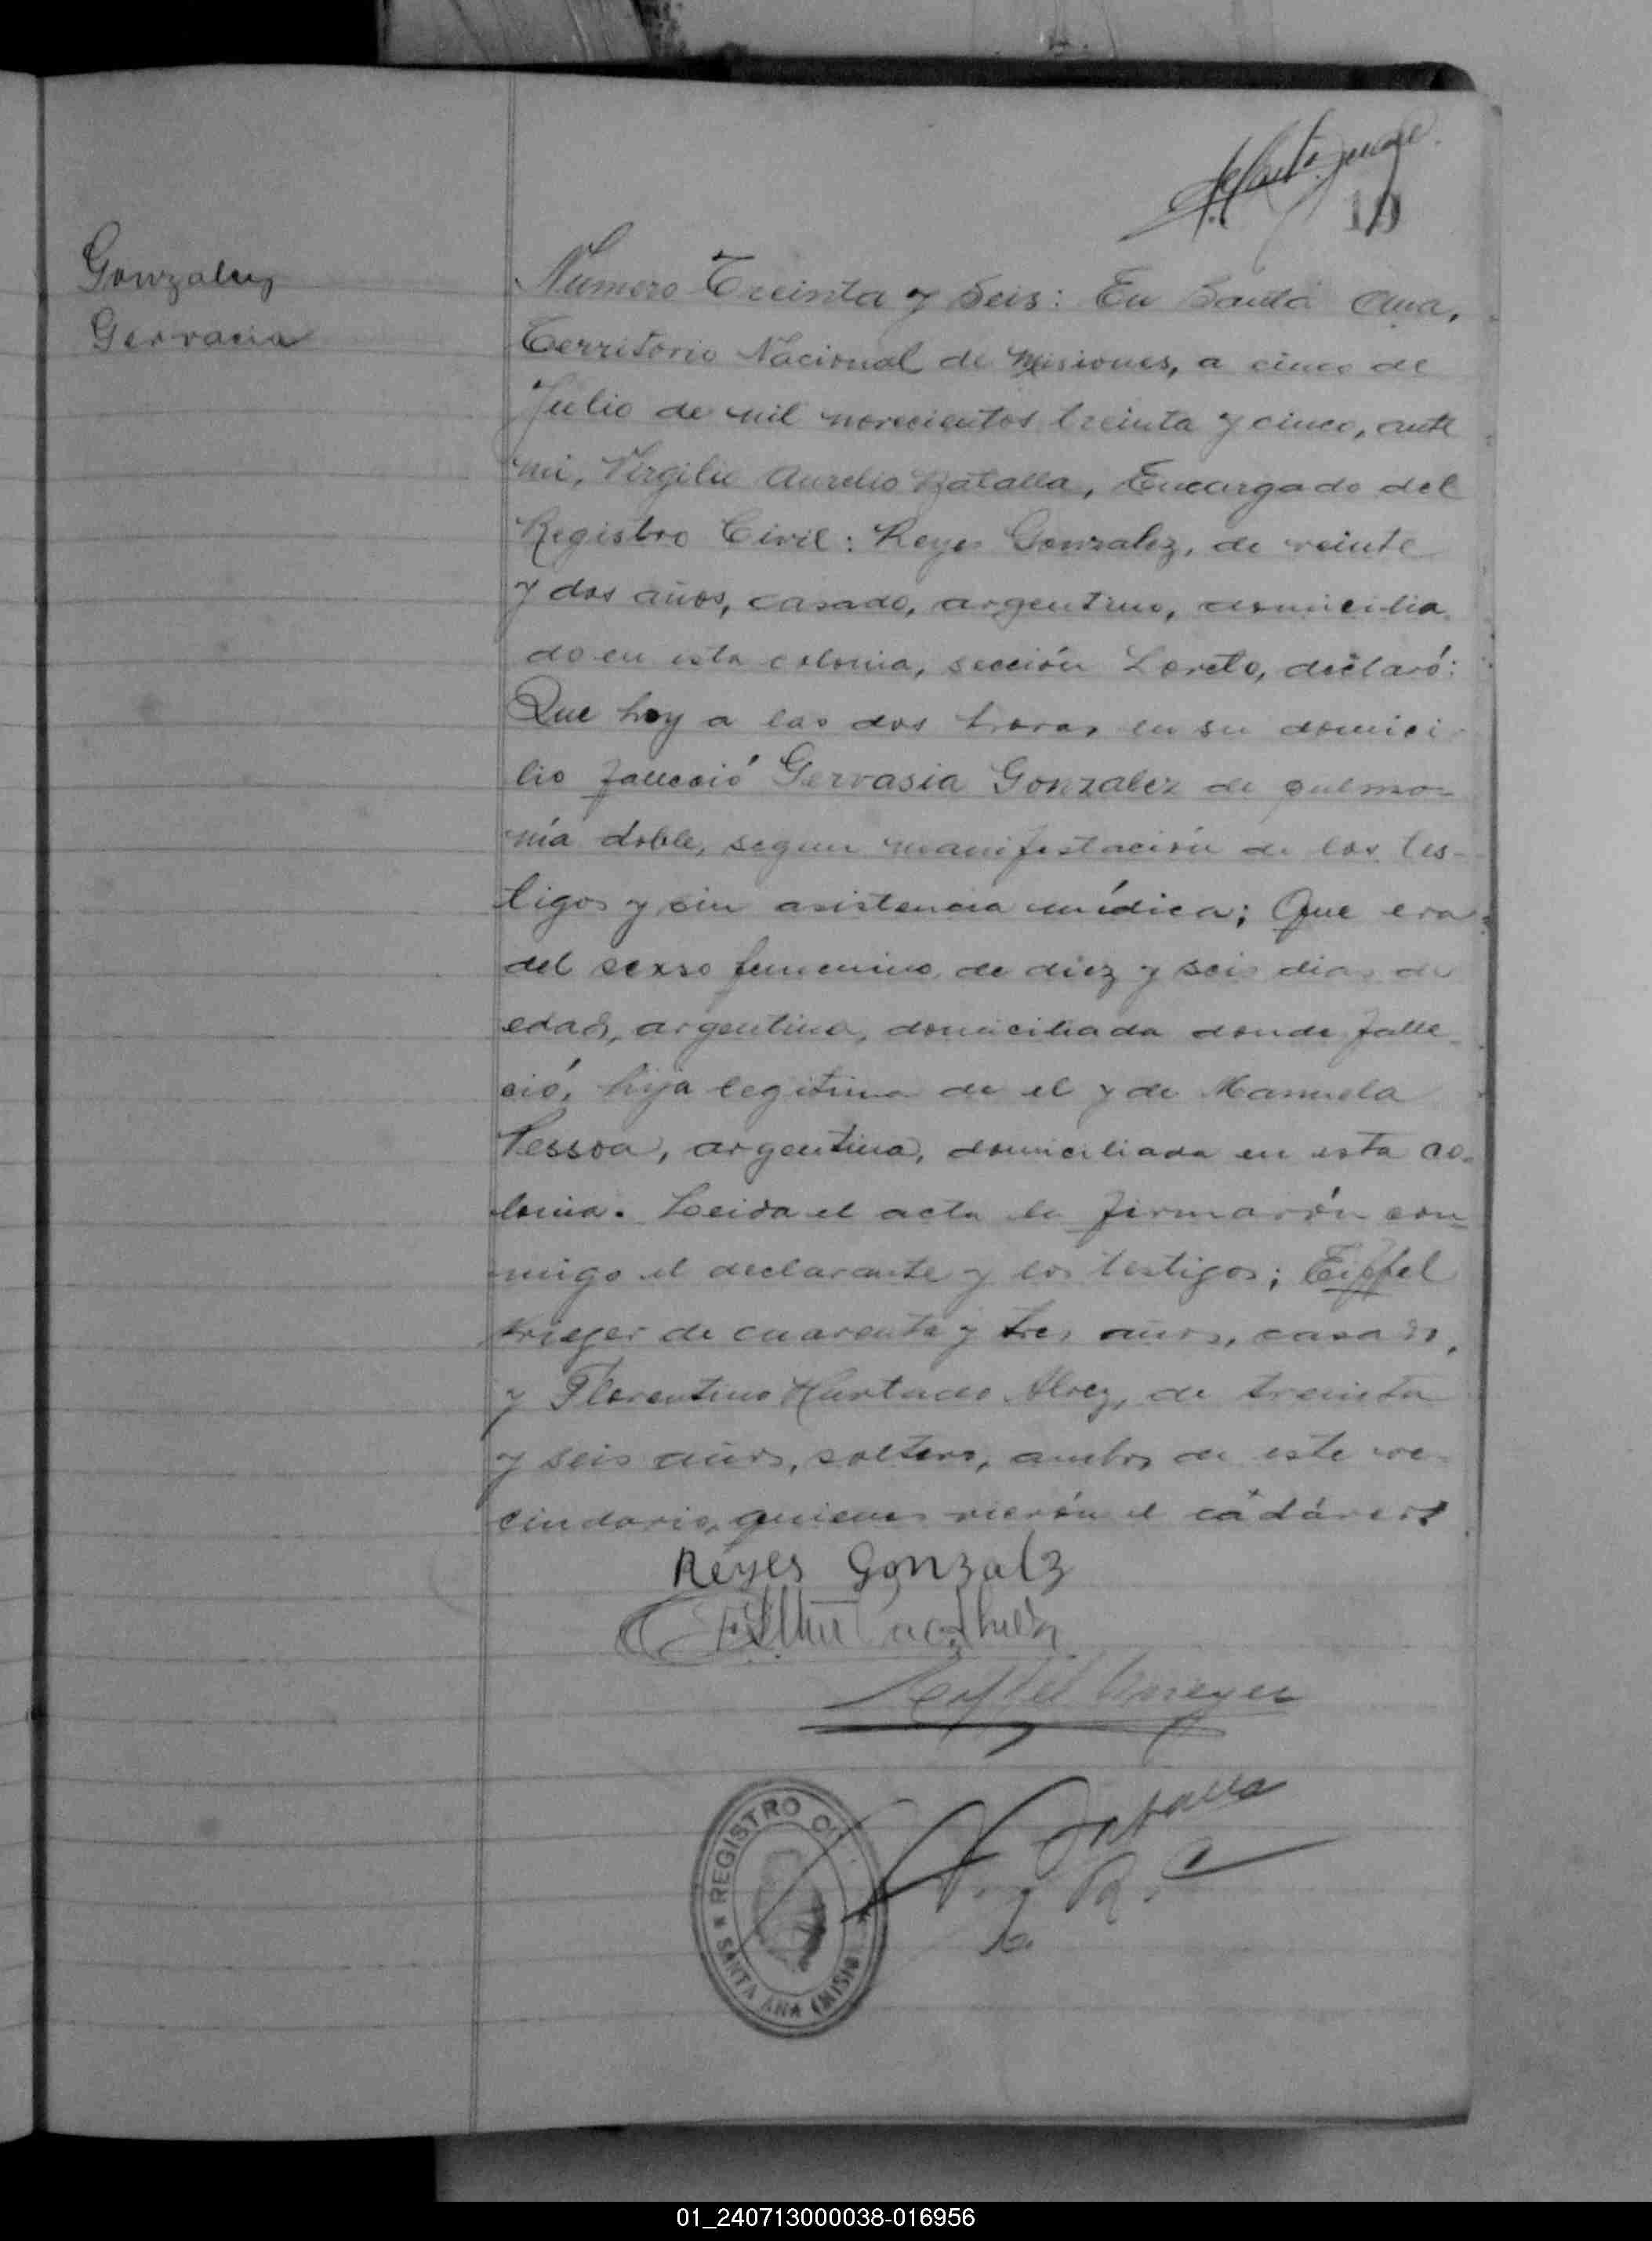 19
Gonzalez
Gervacia
Numero Treinta y Seis: En Santa Ana,
Territorio Nacional de Misiones, a cinco de
Julio de mil novecientos treinta y cinco, ante
mi, Virgilio Aurelio Batalla, Encargado del
Registro Civil: Reyes Gonzalez, de veinte
y dos años, casado, argentino, domicilia
do en esta colonia, sección Loreto, declaró:
Que hoy a las dos horas en su domici
lio falleció Gervasia Gonzalez de pulmo-
nía doble, segun manifestación de los tes-
tigos y sin asistencia médica; Que era
del sexso femenino, de diez y seis dias de
edad, argentina, domiciliada donde falle-
ció, hija legitima de el y de Manuela
Pessoa, argentina, domiciliada en esta co-
lonia. Leida el acta la firmarón con-
migo el declarante y los testigos; Eiffel
Krieger de cuarenta y tres años, casado,
y Florentino Hurtado Alvez, de treinta
y seis años, soltero, ambos de este ve-
cindario, quienes vierón el cadáver
Reyes Gonzalz
Eiffel Krieger
Batalla
REGISTRO CI
SANTA ANA (MISIO
01_240713000038-016956